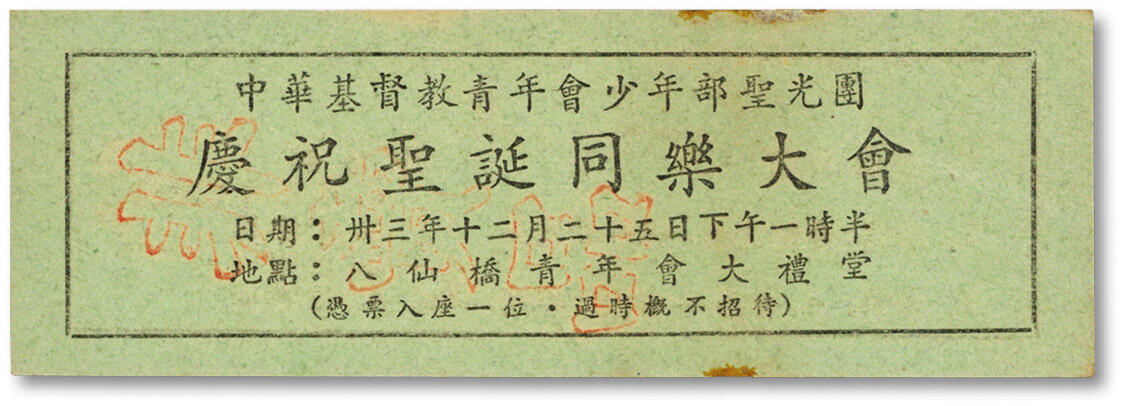 中華基督教青年會少年部聖光團
慶祝聖誕同樂大會
日期：卅三年十二月二十五日下午一時半
地點：八仙橋青年會大禮堂
(憑票入座一位·過時概不招待)